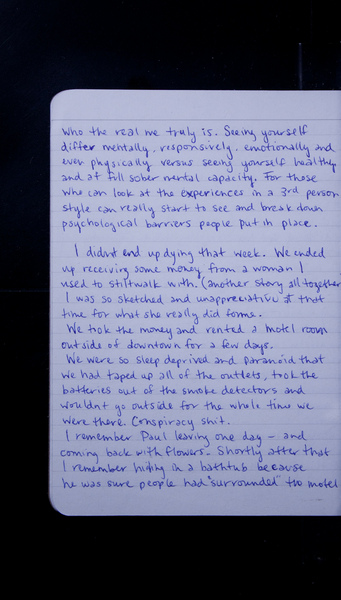 who the real me truly is. Seeing yourself
differ mentally, responsively, emotionally and
even physically versus seeing yourself healthy
and at full sober mental capacity. For those
who can look at the experiences in a 3rd person
style can really start to see and break down
psychological barriers people put in place.
I didn't end up dying that week. We ended
up receiving some money from a woman I
used to stiltwalk with. (another story all together
I was so sketched and unappreciative at that
time for what she really did forms.
We took the money and rented a motel room
outside of downtown for a few days.
We were so sleep deprived and paranoid that
we had taped up all of the outlets, took the
batteries out of the smoke detectors and
wouldnt go outside for the whole time we
were there. Conspiracy shit.
I remember Paul leaving one day - and
coming back with flowers. Shortly after that
I remember hiding in a bathtub because
he was sure people had "surrounded" the motel